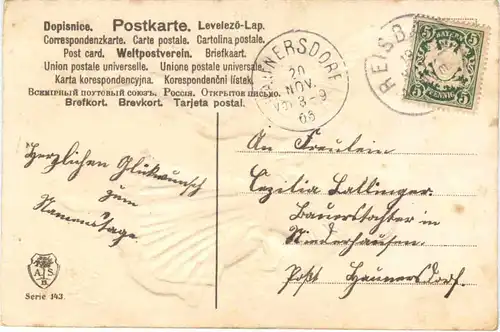 Dopisnice. Postkarte. Levelező-Lap.
Correspondenzkarte. Carte postale. Cartolina postale.
Post card. Weltpostverein. Briefkaart.
Union postale universelle. Unione postale universale.
Karta korespondencyjna. Korespondenční lístek.
Всемирный почтовый союзъ. Россія. Открытое письмо.
Brefkort. Brevkort. Tarjeta postal.
HAUNERSDORF
20
NOV.
8-9
REISBA
BAYERN
5 5
5 5
PFENNIG
Herzlichen Glükwunsch
zum
Namenstage
An Fräulein
Cezilia Lallinger
Bauerstochter in
Niederhausen.
Post Haunersdorf.
A S
Serie 143.